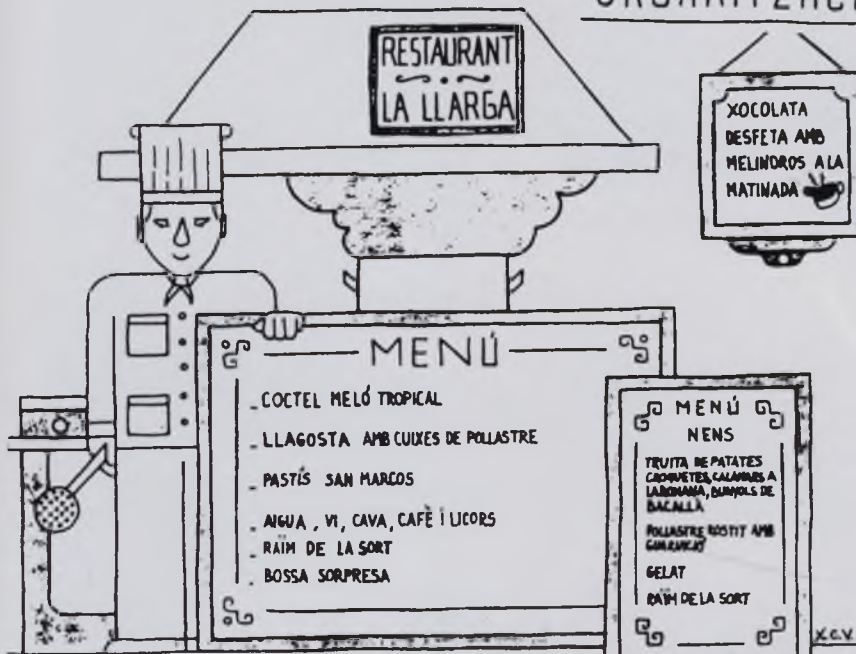 RESTAURANT
LA LLARGA
XOCOLATA
DESFETA AMB
MELINDROS A LA
MATINADA
MENÚ
COCTEL MELÓ TROPICAL
LLAGOSTA AMB CUIXES DE POLLASTRE
PASTÍS SAN MARCOS
AIGUA, VI, CAVA, CAFÈ I LICORS
RAÏM DE LA SORT
BOSSA SORPRESA
MENÚ
NENS
TRUITA DE PATATES
CROQUETES, CALAMARS A
LA ROMANA, BUNYOLS DE
BACALLÀ
POLLASTRE ROSTIT AMB
GUARNICIÓ
GELAT
RAÏM DE LA SORT
X.C.V.